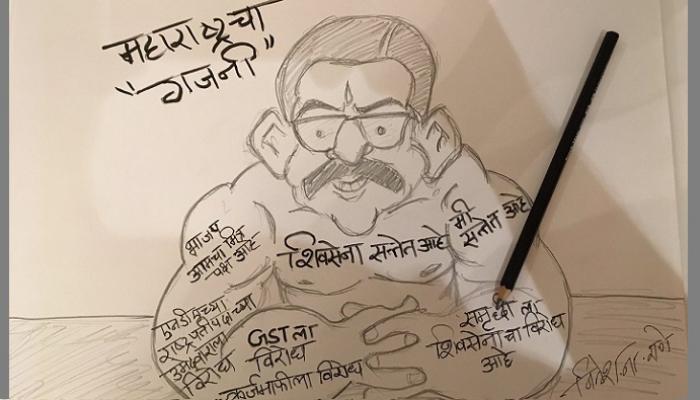 महाराष्ट्रचा
"गजनी"
भाजप
आमचा मित्र
पक्ष आहे
शिवसेना सत्तेत आहे
मी
सत्तेत आहे
एनडीएच्या
राष्ट्रपतीपदाच्या
उमेदवाराला
विरोध
GST ला
विरोध
कर्जमाफीला विरोध
समृद्धी ला
शिवसेनाचा विरोध
आहे